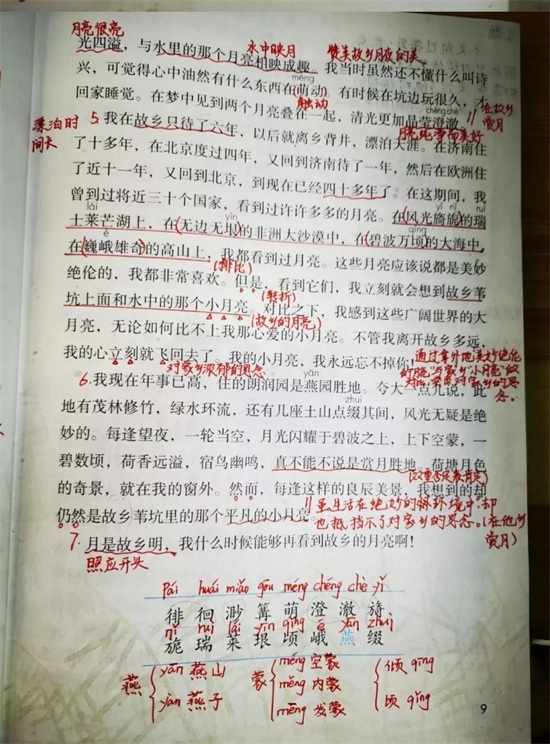 月亮很亮
水中映月
赞美故乡月夜的美
光四溢，与水里的那个月亮相映成趣。我当时虽然还不懂什么叫诗
兴，可觉得心中油然有什么东西在萌动。有时候在坑边玩很久，才
méng
触动
回家睡觉。在梦中见到两个月亮叠在一起，清光更加晶莹澄澈。
chéng chè
在故乡赏月
月亮纯净而美好
漂泊时间长
5 我在故乡只待了六年，以后就离乡背井，漂泊天涯。在济南住
了十多年，在北京度过四年，又回到济南待了一年，然后在欧洲住
了近十一年，又回到北京，到现在已经四十多年了。在这期间，我
曾到过将近三十个国家，看到过许许多多的月亮。在风光旖旎的瑞
yǐ nǐ ruì
lái
士莱芒湖上，在无边无垠的非洲大沙漠中，在碧波万顷的大海中，
yín
qǐng
é
在巍峨雄奇的高山上，我都看到过月亮。这些月亮应该说都是美妙
(排比)
绝伦的，我都非常喜欢。但是，看到它们，我立刻就会想到故乡苇
(转折)
坑上面和水中的那个小月亮。对比之下，我感到这些广阔世界的大
(故乡的月亮)
月亮，无论如何比不上我那心爱的小月亮。不管我离开故乡多远，
我的心立刻就飞回去了。我的小月亮，我永远忘不掉你！
对故乡浓郁的思念
6. 我现在年事已高，住的朗润园是燕园胜地。夸大一点儿说，此
地有茂林修竹，绿水环流，还有几座土山点缀其间，风光无疑是绝
zhuì
妙的。每逢望夜，一轮当空，月光闪耀于碧波之上，上下空蒙，一
碧数顷，荷香远溢，宿鸟幽鸣，真不能不说是赏月胜地。荷塘月色
(双重否定表肯定)
的奇景，就在我的窗外。然而，每逢这样的良辰美景，我想到的却
仍然是故乡苇坑里的那个平凡的小月亮。
虽生活在绝妙的环境中，却
也抵挡不了对家乡的思念。(在他乡赏月)
7. 月是故乡明，我什么时候能够再看到故乡的月亮啊！
照应开头
pái huái miǎo gōu méng chéng chè yǐ
徘 徊 渺 篝 萌 澄 澈 旖
nǐ ruì lái yín qǐng é yān zhuì
旎 瑞 莱 垠 顷 峨 燕 缀
燕 yān 燕山
yàn 燕子
蒙 méng 空蒙
měng 内蒙
mēng 发蒙
倾 qīng
顷 qǐng
9